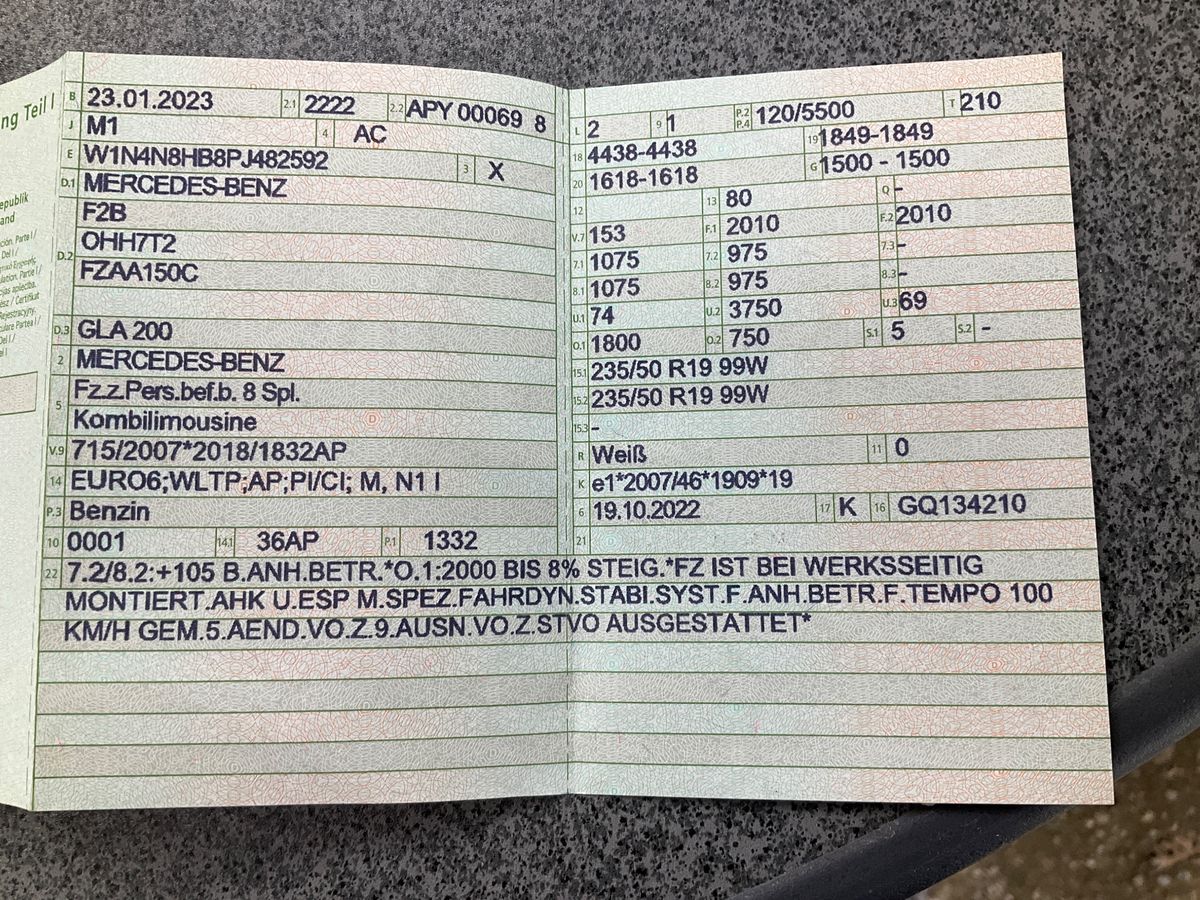 ng Teil I
epublik
and
B 23.01.2023 2.1 2222 2.2 APY 00069 8
J M1 4 AC
E W1N4N8HB8PJ482592 3 X
D.1 MERCEDES-BENZ
F2B
D.2 OHH7T2
FZAA150C
D.3 GLA 200
2 MERCEDES-BENZ
5 Fz.z.Pers.bef.b. 8 Spl.
Kombilimousine
V.9 715/2007*2018/1832AP
14 EURO6;WLTP;AP;PI/CI; M, N1 I
P.3 Benzin
10 0001 14.1 36AP P.1 1332
L 2 9 1 P.2 P.4 120/5500 T 210
18 4438-4438 19 1849-1849
20 1618-1618 G 1500 - 1500
12 13 80 Q -
V.7 153 F.1 2010 F.2 2010
7.1 1075 7.2 975 7.3 -
8.1 1075 8.2 975 8.3 -
U.1 74 U.2 3750 U.3 69
O.1 1800 O.2 750 S.1 5 S.2 -
15.1 235/50 R19 99W
15.2 235/50 R19 99W
15.3 -
R Weiß 11 0
K e1*2007/46*1909*19
6 19.10.2022 17 K 16 GQ134210
21
22 7.2/8.2:+105 B.ANH.BETR.*O.1:2000 BIS 8% STEIG.*FZ IST BEI WERKSSEITIG
MONTIERT.AHK U.ESP M.SPEZ.FAHRDYN.STABI.SYST.F.ANH.BETR.F.TEMPO 100
KM/H GEM.5.AEND.VO.Z.9.AUSN.VO.Z.STVO AUSGESTATTET*